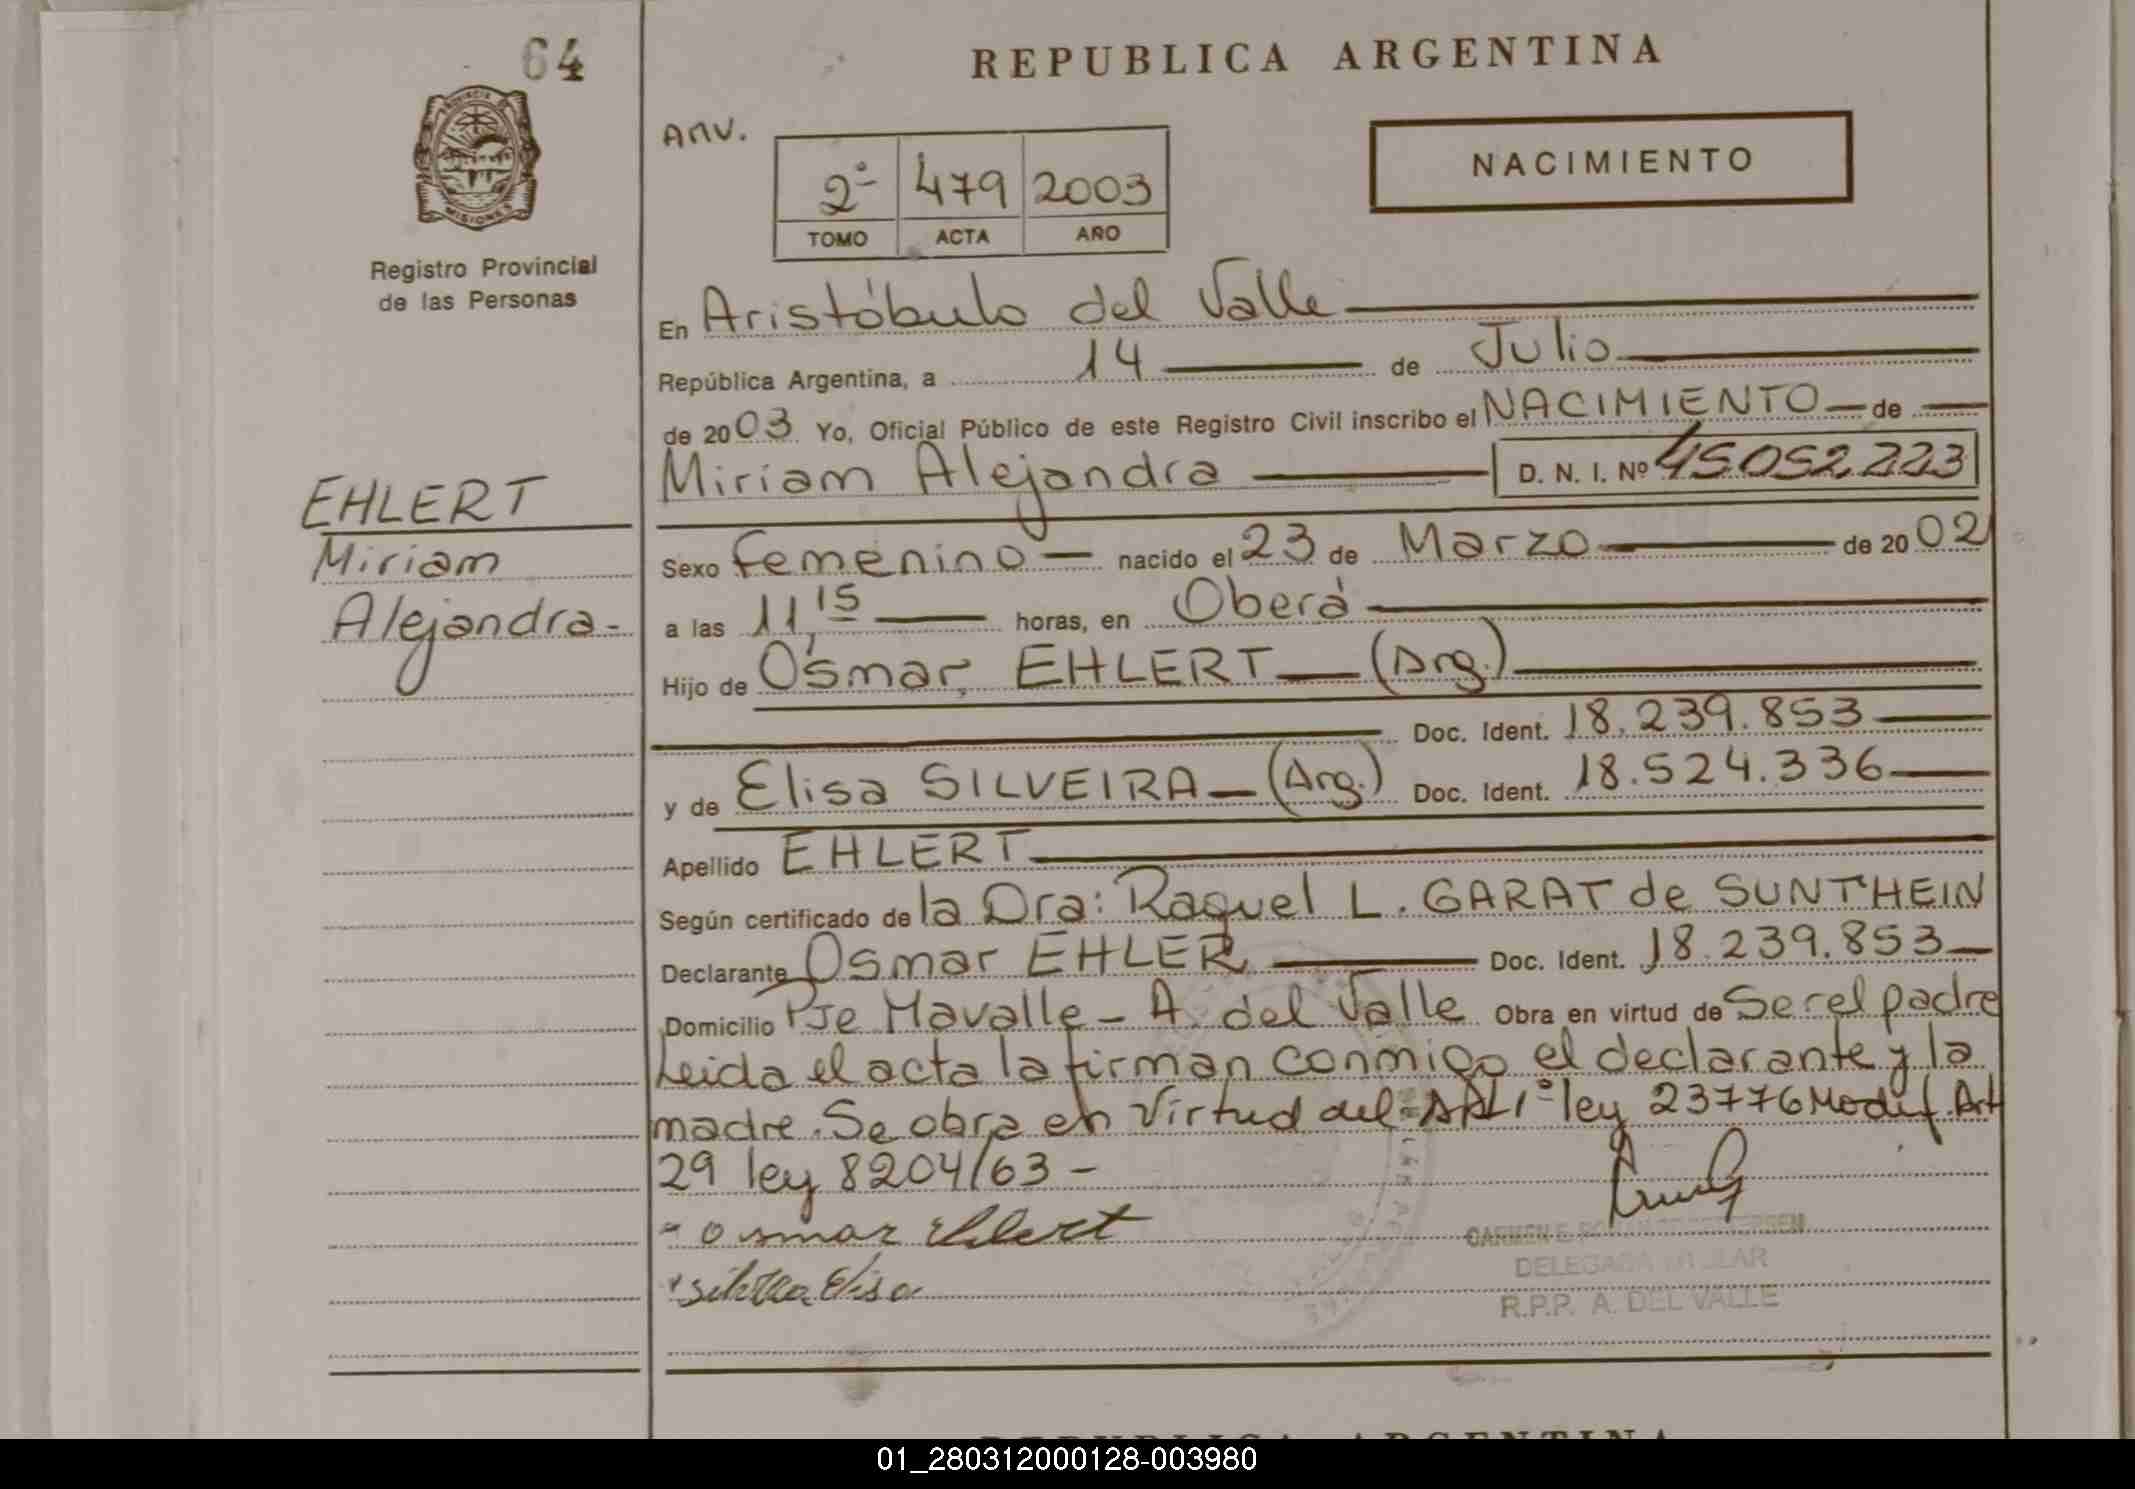 64
REPUBLICA ARGENTINA
PROVINCIA DE
MISIONES
Registro Provincial
de las Personas
Anv.
2º 479 2003
TOMO ACTA AÑO
NACIMIENTO
En Aristóbulo del Valle
República Argentina, a 14 de Julio
de 2003 Yo, Oficial Público de este Registro Civil inscribo el NACIMIENTO de
Miriam Alejandra D. N. I. Nº 45.052.223
EHLERT
Miriam
Alejandra-
Sexo Femenino nacido el 23 de Marzo de 2002
a las 11,15 horas, en Oberá
Hijo de Osmar EHLERT (Arg.)
Doc. Ident. 18.239.853
y de Elisa SILVEIRA (Arg.) Doc. Ident. 18.524.336
Apellido EHLERT
Según certificado de la Dra: Raquel L. GARAT de SUNTHEIN
Declarante Osmar EHLER Doc. Ident. 18.239.853
Domicilio Pje Mavalle - A. del Valle Obra en virtud de Ser el padre
Leida el acta la firman conmigo el declarante y la
madre. Se obra en Virtud del Art 1º ley 23776 Modif. Art
29 ley 8204/63 -
Osmar Ehlert
Elisa
CARMEN E.
DELEGADA TITULAR
R.P.P. A. DEL VALLE
REPUBLICA ARGENTINA
01_280312000128-003980